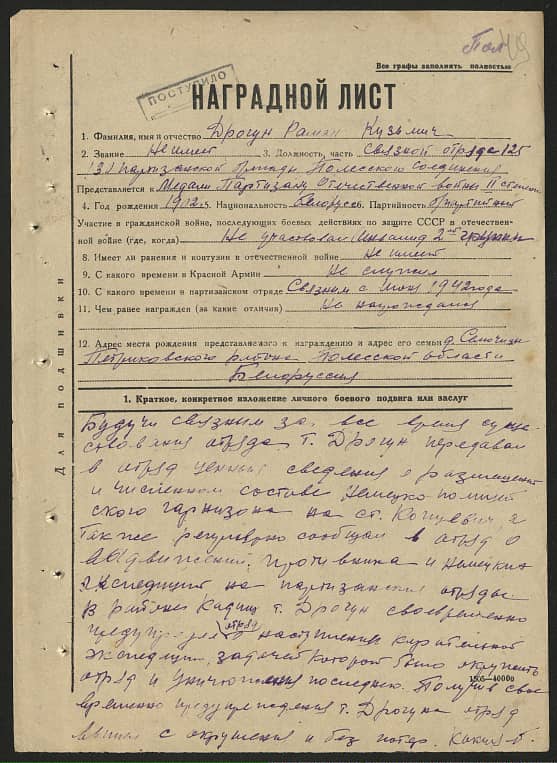 Пол
49
Все графы заполнять полностью
ПОСТУПИЛО
НАГРАДНОЙ ЛИСТ
1. Фамилия, имя и отчество Дрогун Раман Кузьмич
2. Звание Не имеет 3. Должность, часть связной отряда 125
130 партизанской бригады Полесского Соединения
Представляется к Медали Партизану Отечественной войны II степени
4. Год рождения 1902 г. 5. Национальность белорус 6. Партийность б/партийный
Участие в гражданской войне, последующих боевых действиях по защите СССР в отечественной
ной войне (где, когда) Не участвовал Инвалид 2-ой группы
8. Имеет ли ранения и контузии в отечественной войне Не имеет
9. С какого времени в Красной Армии Не служил
10. С какого времени в партизанском отряде Связным с 1942 года
11. Чем ранее награжден (за какие отличия) Не награждался
12. Адрес места рождения представляемого к награждению и адрес его семьи д.
Петриковского района Полесской области
Белоруссия
Для подшивки
1. Краткое, конкретное изложение личного боевого подвига или заслуг
Будучи связным за все время суще
ствования отряда т. Дрогун передавал
в отряд ценные сведения о размещении
и численном составе Немецко-полицей
ского гарнизона на ст. Копцевичи, а
также регулярно сообщал в отряд о
противника и Немецких
экспедиций на партизанские отряды
В районе т. Дрогун своевременно
предупредил отряд о наступлении карательной
экспедиции, задачей которой было окружить
отряд и уничтожения последнего. Получив свое
1505—40000
временно предупреждения т. Дрогуна отряд
вышел с окружения и без потер.